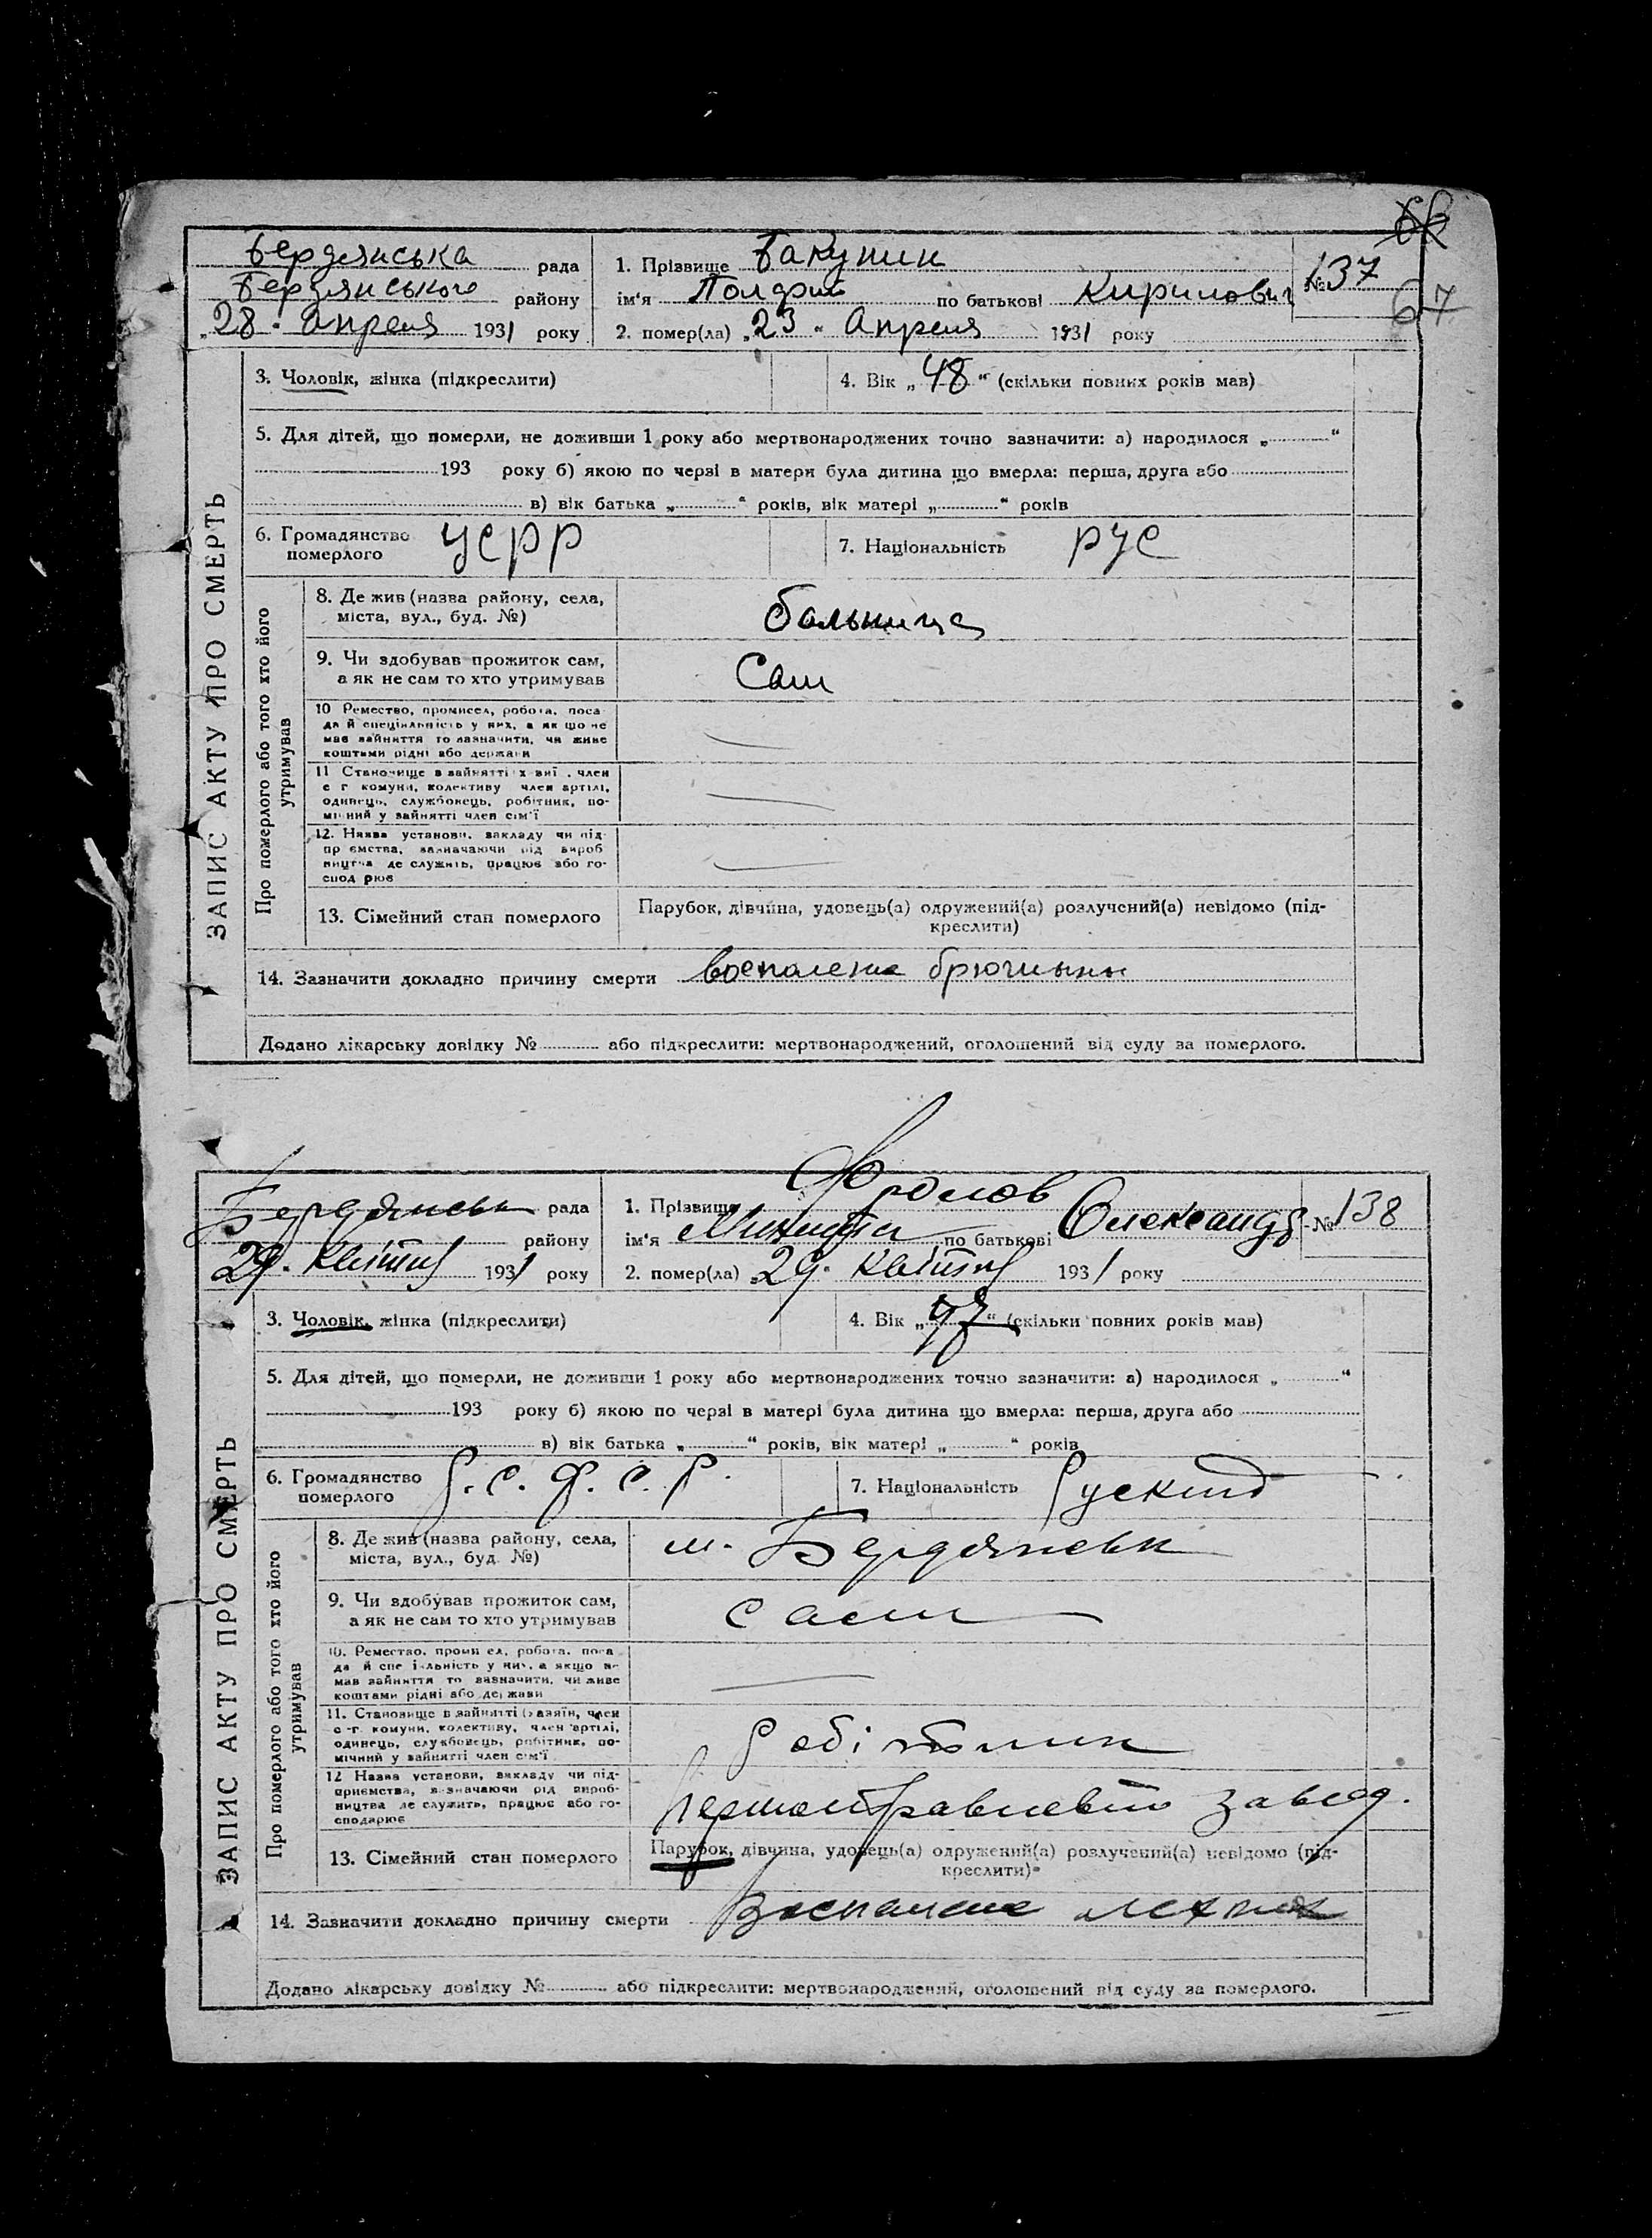 Бердянська рада
Бердянського району
„28“ Апреля 1931 року
1. Прізвище Бакунин
ім'я по батькові Кирилович
2. помер(ла) „23“ Апреля 1931 року
№ 137
67
3. Чоловік, жінка (підкреслити)
4. Вік „48“ (скільки повних років мав)
5. Для дітей, що померли, не доживши 1 року або мертвонароджених точно зазначити: а) народилося „ “
193 року б) якою по черзі в матери була дитина що вмерла: перша, друга або
в) вік батька „ “ років, вік матері „ “ років
6. Громадянство
померлого
УСРР
7. Національність рус
ЗАПИС АКТУ ПРО СМЕРТЬ
Про померлого або того хто його
утримував
8. Де жив (назва району, села,
міста, вул., буд. №)
больница
9. Чи здобував прожиток сам,
а як не сам то хто утримував
Сам
10 Ремество, промисел, робота, поса-
да й спеціальність у них, а як що не
мав зайняття то зазначити, чи живе
коштами рідні або держави
11 Становище в зайнятті х вні . член
с г комуни, колективу член артілі,
одинець, службовець, робітник, по-
мічний у зайнятті член сім'ї
12. Назва установи, закладу чи під-
пр ємства, зазначаючи рід вироб
ництва де служить, працює або го-
спод рює
13. Сімейний стан померлого
Парубок, дівчина, удовець(а) одружений(а) розлучений(а) невідомо (під-
креслити)
14. Зазначити докладно причину смерти воспаление брюшины
Додано лікарську довідку № або підкреслити: мертвонароджений, оголошений від суду за померлого.
Бердянськ рада
району
29. Квітня 1931 року
1. Прізвище Фролов
ім'я Микита по батькові Олександр
2. помер(ла) „29“ Квітня 1931 року
№ 138
3. Чоловік, жінка (підкреслити)
4. Вік „ “ (скільки повних років мав)
5. Для дітей, що померли, не доживши 1 року або мертвонароджених точно зазначити: а) народилося „ “
193 року б) якою по черзі в матері була дитина що вмерла: перша, друга або
в) вік батька „ “ років, вік матері „ “ років
6. Громадянство
померлого
Р.С.Ф.С.Р.
7. Національність Руский
ЗАПИС АКТУ ПРО СМЕРТЬ
Про померлого або того хто його
утримував
8. Де жив (назва району, села,
міста, вул., буд. №)
м. Бердянськ
9. Чи здобував прожиток сам,
а як не сам то хто утримував
сам
10. Ремество, проми ел, робота, поса
да й спе і льність у них, а якщо не
мав зайняття то зазначити, чи живе
коштами рідні або держави
11. Становище в зайнятті (хазяїн, член
с-г. комуни, колективу, член артілі,
одинець, службовець, робітник, по-
мічний у зайнятті член сім'ї
Робітник
12 Назва установи, закладу чи під-
приємства, визначаючи рід вироб-
ництва де служить, працює або го-
сподарює
Першотравневий завод.
13. Сімейний стан померлого
Парубок, дівчина, удовець(а) одружений(а) розлучений(а) невідомо (під-
креслити)
14. Зазначити докладно причину смерти Воспаление легких
Додано лікарську довідку № або підкреслити: мертвонароджений, оголошений від суду за померлого.